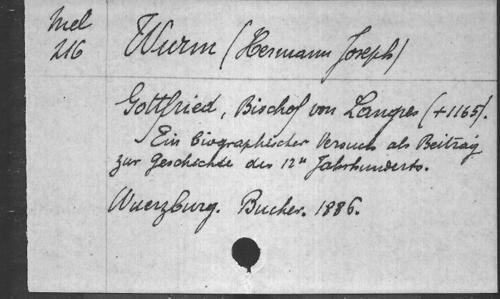 Mel
216
Wurm (Hermann Joseph)
Gottfried, Bischof von Langres (+1165).
Ein biographischer Versuch als Beitrag
zur Geschichte des 12n Jahrhunderts.
Wuerzburg. Bucher. 1886.